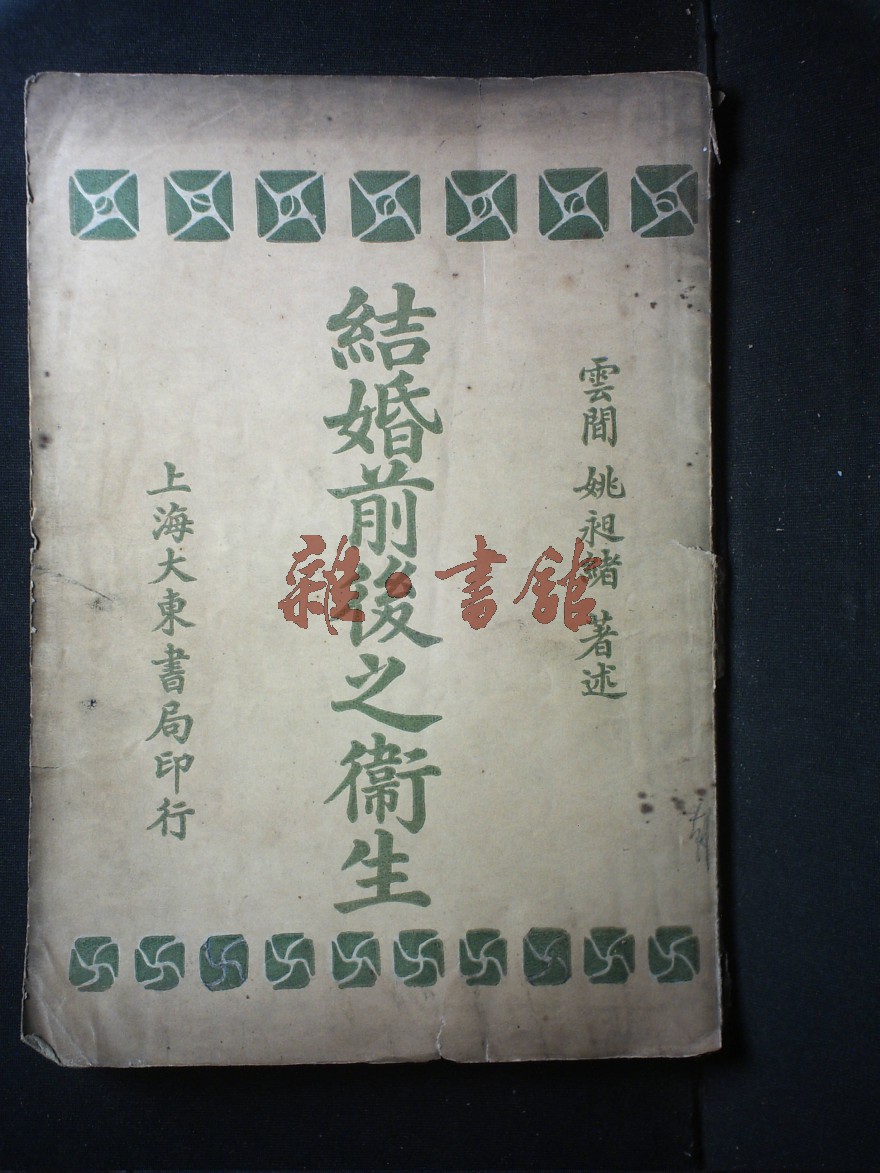 雲間 姚昶緒 著述
結婚前後之衞生
上海大東書局印行
雜·書舘